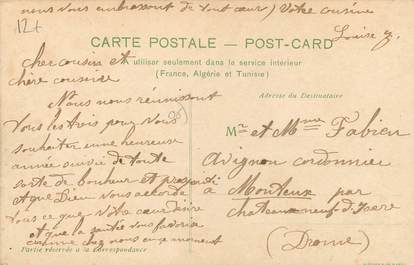 nous vous embrassons de tout cœur Votre cousine
Louise
12t
CARTE POSTALE – POST-CARD
à utiliser seulement dans le service intérieur
(France, Algérie et Tunisie)
cher cousin et
chère cousine
Nous nous réunissons
tous les trois pour vous
souhaiter une heureuse
année suivie de toute
sorte de bonheur et
et que Dieu vous accorde
tous ce que votre cœur désire
et que la santé vous favorise
comme chez nous en ce moment
Adresse du Destinataire
Mr et Mme Fabien
Avignon cordonnier
à Monteux par
chateauneuf d'isere
(Drome)
Partie réservée à la Correspondance